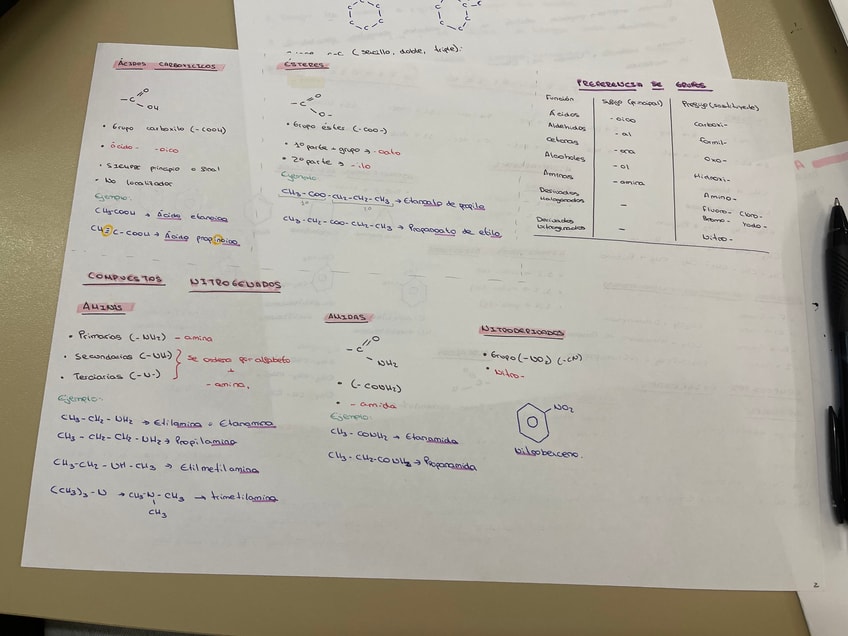 (sencillo, doble, triple):
ÁCIDOS CARBOXÍLICOS
-C
O
OH
• Grupo carboxilo (-COOH)
• Ácido- -oico
• Siempre principio o final
• No localizador
Ejemplo:
CH3COOH → Ácido etanoico
C-COOH → Ácido propinoico
ÉSTERES
-C
O
O-
• Grupo éster (-COO-)
• 1º parte + grupo → -oato
• 2º parte → -ilo
Ejemplo:
CH3-COO-CH2-CH2-CH3 → Etanoato de propilo
1º 2º
CH3-CH2-COO-CH2-CH3 → Propanoato de etilo
PREFERENCIA DE GRUPOS
Función Sufijo (principal) Prefijo (sustituyente)
Ácidos -oico Carboxi-
Aldehídos -al Formil-
Cetonas -ona Oxo-
Alcoholes -ol Hidroxi-
Aminas -amina Amino-
Derivados Halogenados - Fluoro- Cloro-
Bromo- Yodo-
Derivados Nitrogenados - Nitro-
COMPUESTOS NITROGENADOS
AMINAS
• Primarias (-NH2) -amina
• Secundarias (-NH)
• Terciarias (-N-)
Se ordena por alfabeto
+
-amina.
Ejemplo:
CH3-CH2-NH2 → Etilamina = Etanamina
CH3-CH2-CH2-NH2 → Propilamina
CH3-CH2-NH-CH3 → Etilmetilamina
(CH3)3-N → CH3-N-CH3 → trimetilamina
CH3
AMIDAS
-C
O
NH2
• (-CONH2)
• -amida
Ejemplo:
CH3-CONH2 → Etanamida
CH3-CH2-CONH2 → Propanamida
NITRODERIVADOS
• Grupo (-NO2) (-CN)
• Nitro-
NO2
Nitrobenceno.
2